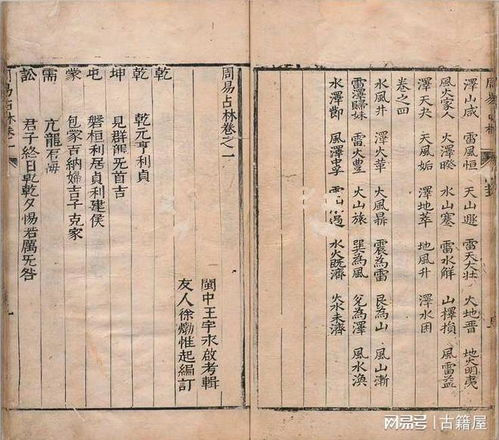 周易占林
澤山咸 雷風恒 天山遯 雷天大壯 火地晉 地火明夷
風火家人 火澤睽 水山蹇 雷水解 山澤損 風雷益
澤天夬 天風姤 澤地萃 地風升 澤水困
卷之四
水風井 澤火革 火風鼎 震為雷 艮為山 風山漸
雷澤歸妹 雷火豐 火山旅 巽為風 兌為澤 風水渙
水澤節 風澤中孚 雷山小過 水火既濟 火水未濟
周易占林卷之一
閩中王宇永啟考輯
友人徐𤊹惟起編訂
乾
乾 乾元亨利貞
坤 見群龍无首吉
屯 磐桓利居貞利建侯
蒙 包蒙吉納婦吉子克家
需 亢龍有悔
訟 君子終日乾乾夕惕若厲无咎
周易占林卷一
網易號 | 古籍屋